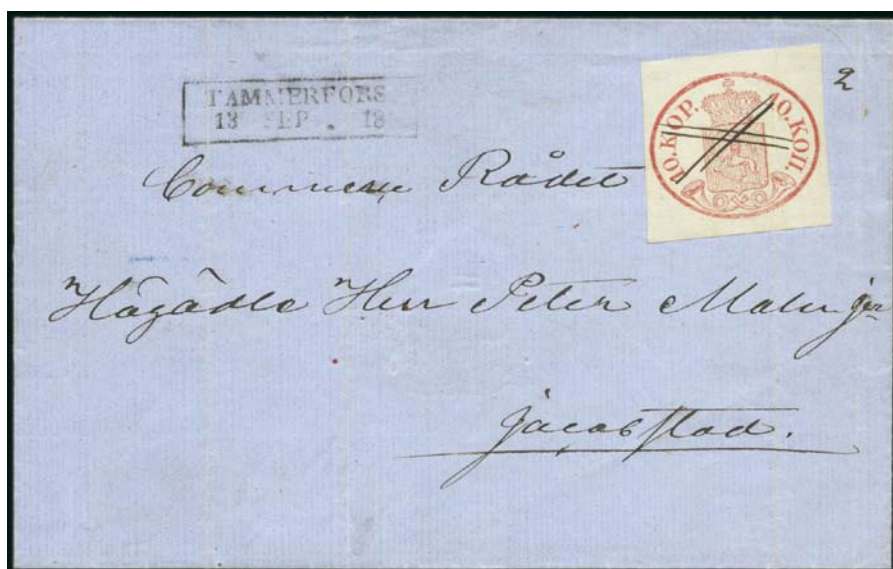 TAMMERFORS
13 SEP. 18
10.KOP. 10.КОП.
2
Commerce Rådet
Högädle Herr Peter Malm jor
Jacobstad.